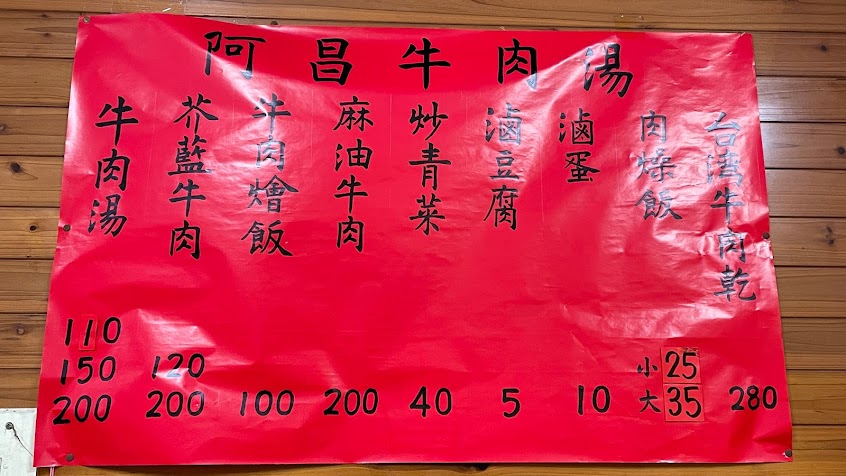 阿昌牛肉湯
牛肉湯
110
150
200
芥藍牛肉
120
200
牛肉燴飯
100
麻油牛肉
200
炒青菜
40
滷豆腐
5
滷蛋
10
肉燥飯
小25
大35
台湾牛肉乾
280